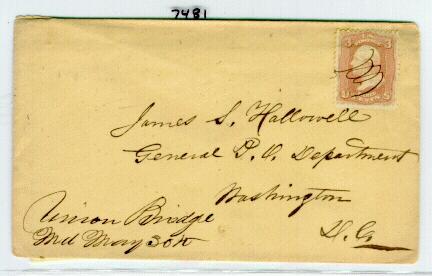 7481
James S. Hallowell
General P. O. Department
Washington
D. C.
Union Bridge
Md May 30th